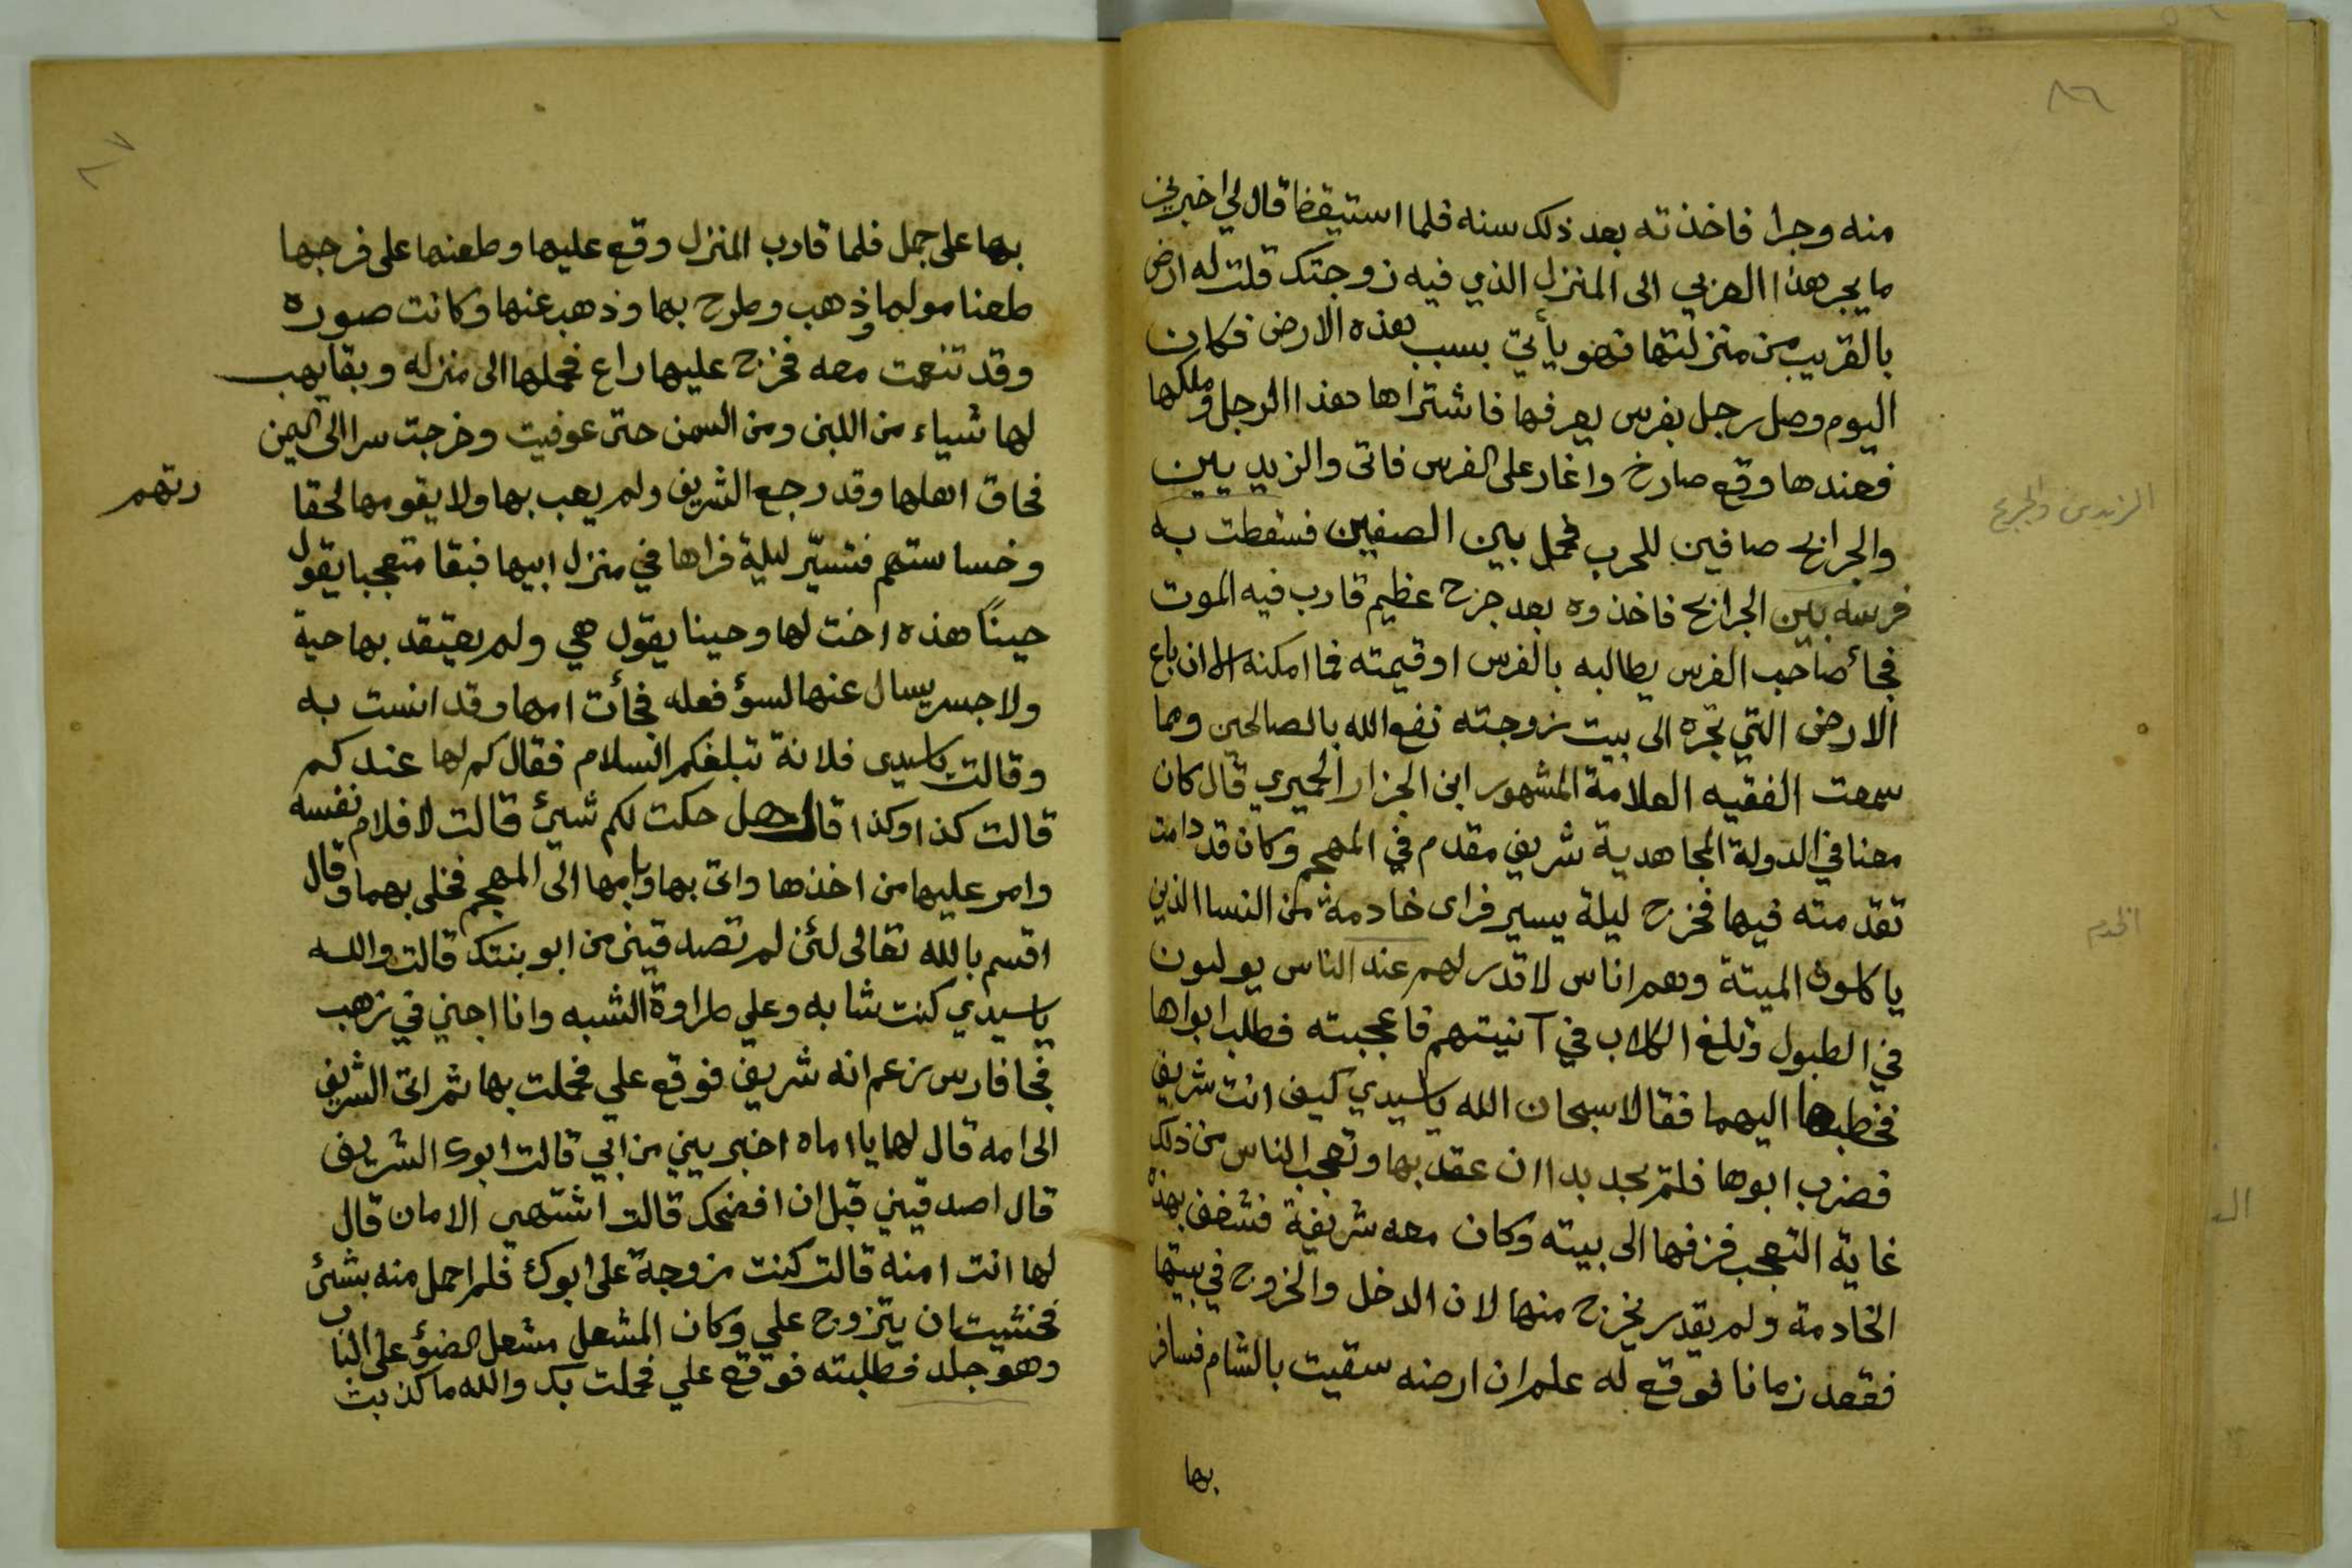 ٨٦
منه وجرا فاخذته بعد ذلك سنه فلما استيقظا قال لي اخبريني
ما يجر هذا العزبي الى المنزل الذي فيه زوجتك قلت له ارض
بالقريب من منزلتها فهو يأتي بسبب هذه الارض فكان
اليوم وصل رجل بفرس يعرفها فاشتراها هذا الرجل وملكها
فعندها وقع صارخ واغار على الفرس فاتى والزيديين
والجرابح صافين للحرب فحمل بين الصفين فسقطت به
فرسه بين الجرابح فاخذوه بعد جرح عظيم قارب فيه الموت
فجأ صاحب الفرس يطالبه بالفرس او قيمته فما امكنه الا ان باع
الارض التي تجره الى بيت زوجته نفع الله بالصالحين ومما
سمعت الفقيه العلامة المشهور ابن الجزار الحميري قال كان
معنا في الدولة المجاهدية شريف مقدم في المهجم وكان قد دامت
تقدمته فيها فخرج ليلة يسير فراى خادمة من النسا الذين
ياكلون الميتة وهم اناس لا قدر لهم عند الناس يولبون
في الطبول وتلغ الكلاب في آنيتهم فاعجبته فطلب ابواها
فخطبها اليهما فقالا سبحان الله ياسيدي كيف انت شريف
فضرب ابوها فلم يجد بدا ان عقد بها وتعجب الناس من ذلك
غاية التعجب فزفها الى بيته وكان معه شريفة فشغف بهذه
الخادمة ولم يقدر يخرج منها لان الدخل والخروج في بيتها
فقعد زمانا فوقع له علم ان ارضه سقيت بالشام فسافر
بها
الزيديين والجرابح
الخدم
٨٧
بها على جمل فلما قارب المنزل وقع عليها وطعنها على فرجها
طعنا مولما وذهب وطرح بها وذهب عنها وكانت صوره
وقد تنعمت معه فخرج عليها راع فحملها الى منزله وبقا يهب
لها شياء من اللبن ومن السمن حتى عوفيت وخرجت سرا الى اليمن
فحاق اهلها وقد رجع الشريف ولم يعب بها ولا يقومها لحقا
رتهم
وخساستهم فتسيّر ليلة فراها في منزل ابيها فبقا متعجبا يقول
حينًا هذه اخت لها وحينا يقول هي ولم يعتقد بها حية
ولا جسر يسال عنها لسؤ فعله فجأت امها وقد انست به
وقالت ياسيدى فلانة تبلغكم السلام فقال كم لها عندكم
قالت كذا وكذا قال هل حكت لكم شيئ قالت لا فلام نفسه
وامر عليها من اخذها واتى بها وبامها الى المهجم فخلى بهما وقال
اقسم بالله تعالى لئن لم تصدقيني من ابو بنتك قالت والله
ياسيدي كنت شابه وعلي طراوة الشبه وانا اجني في زهب
فجا فارس زعم انه شريف فوقع علي فحملت بها ثم اتى الشريف
الى امه قال لها يا اماه اخبريني من ابي قالت ابوك الشريف
قال اصدقيني قبل ان افضحك قالت اشتهي الامان قال
لها انت امنه قالت كنت مزوجة على ابوك فلم احمل منه بشئ
فخشيت ان يتزوج علي وكان المشعل مشعل الضؤ على الباب
وهو جلد فطلبته فوقع علي فحملت بك والله ما كذبت